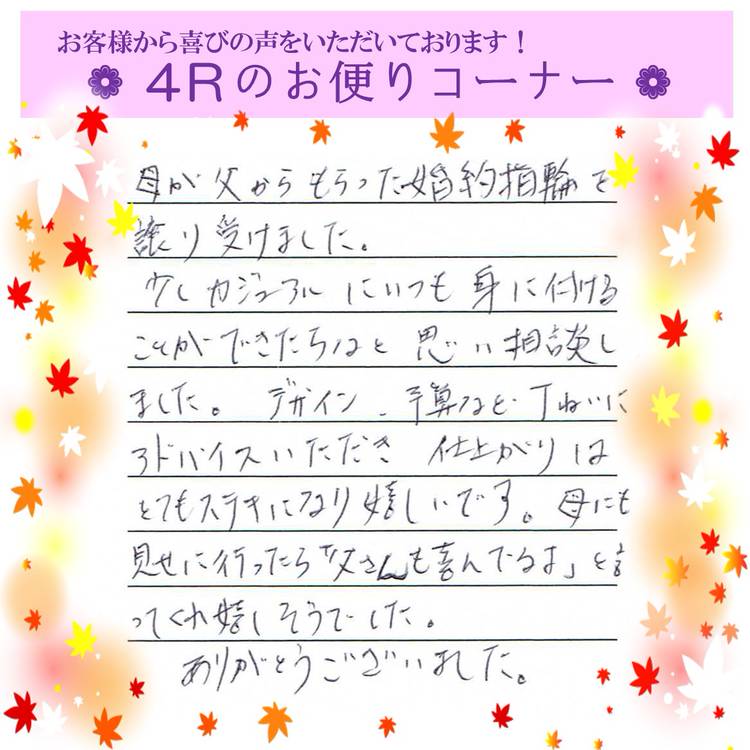 お客様から喜びの声をいただいております！
4Rのお便りコーナー
母が父からもらった婚約指輪を
譲り受けました。
少しカジュアルにいつも身に付ける
ことができたらなと思い相談し
ました。デザイン、予算など丁ねいに
アドバイスいただき 仕上がりは
とてもステキになり嬉しいです。母にも
見せに行ったら「父さんも喜んでるよ」と言
ってくれ嬉しそうでした。
ありがとうございました。